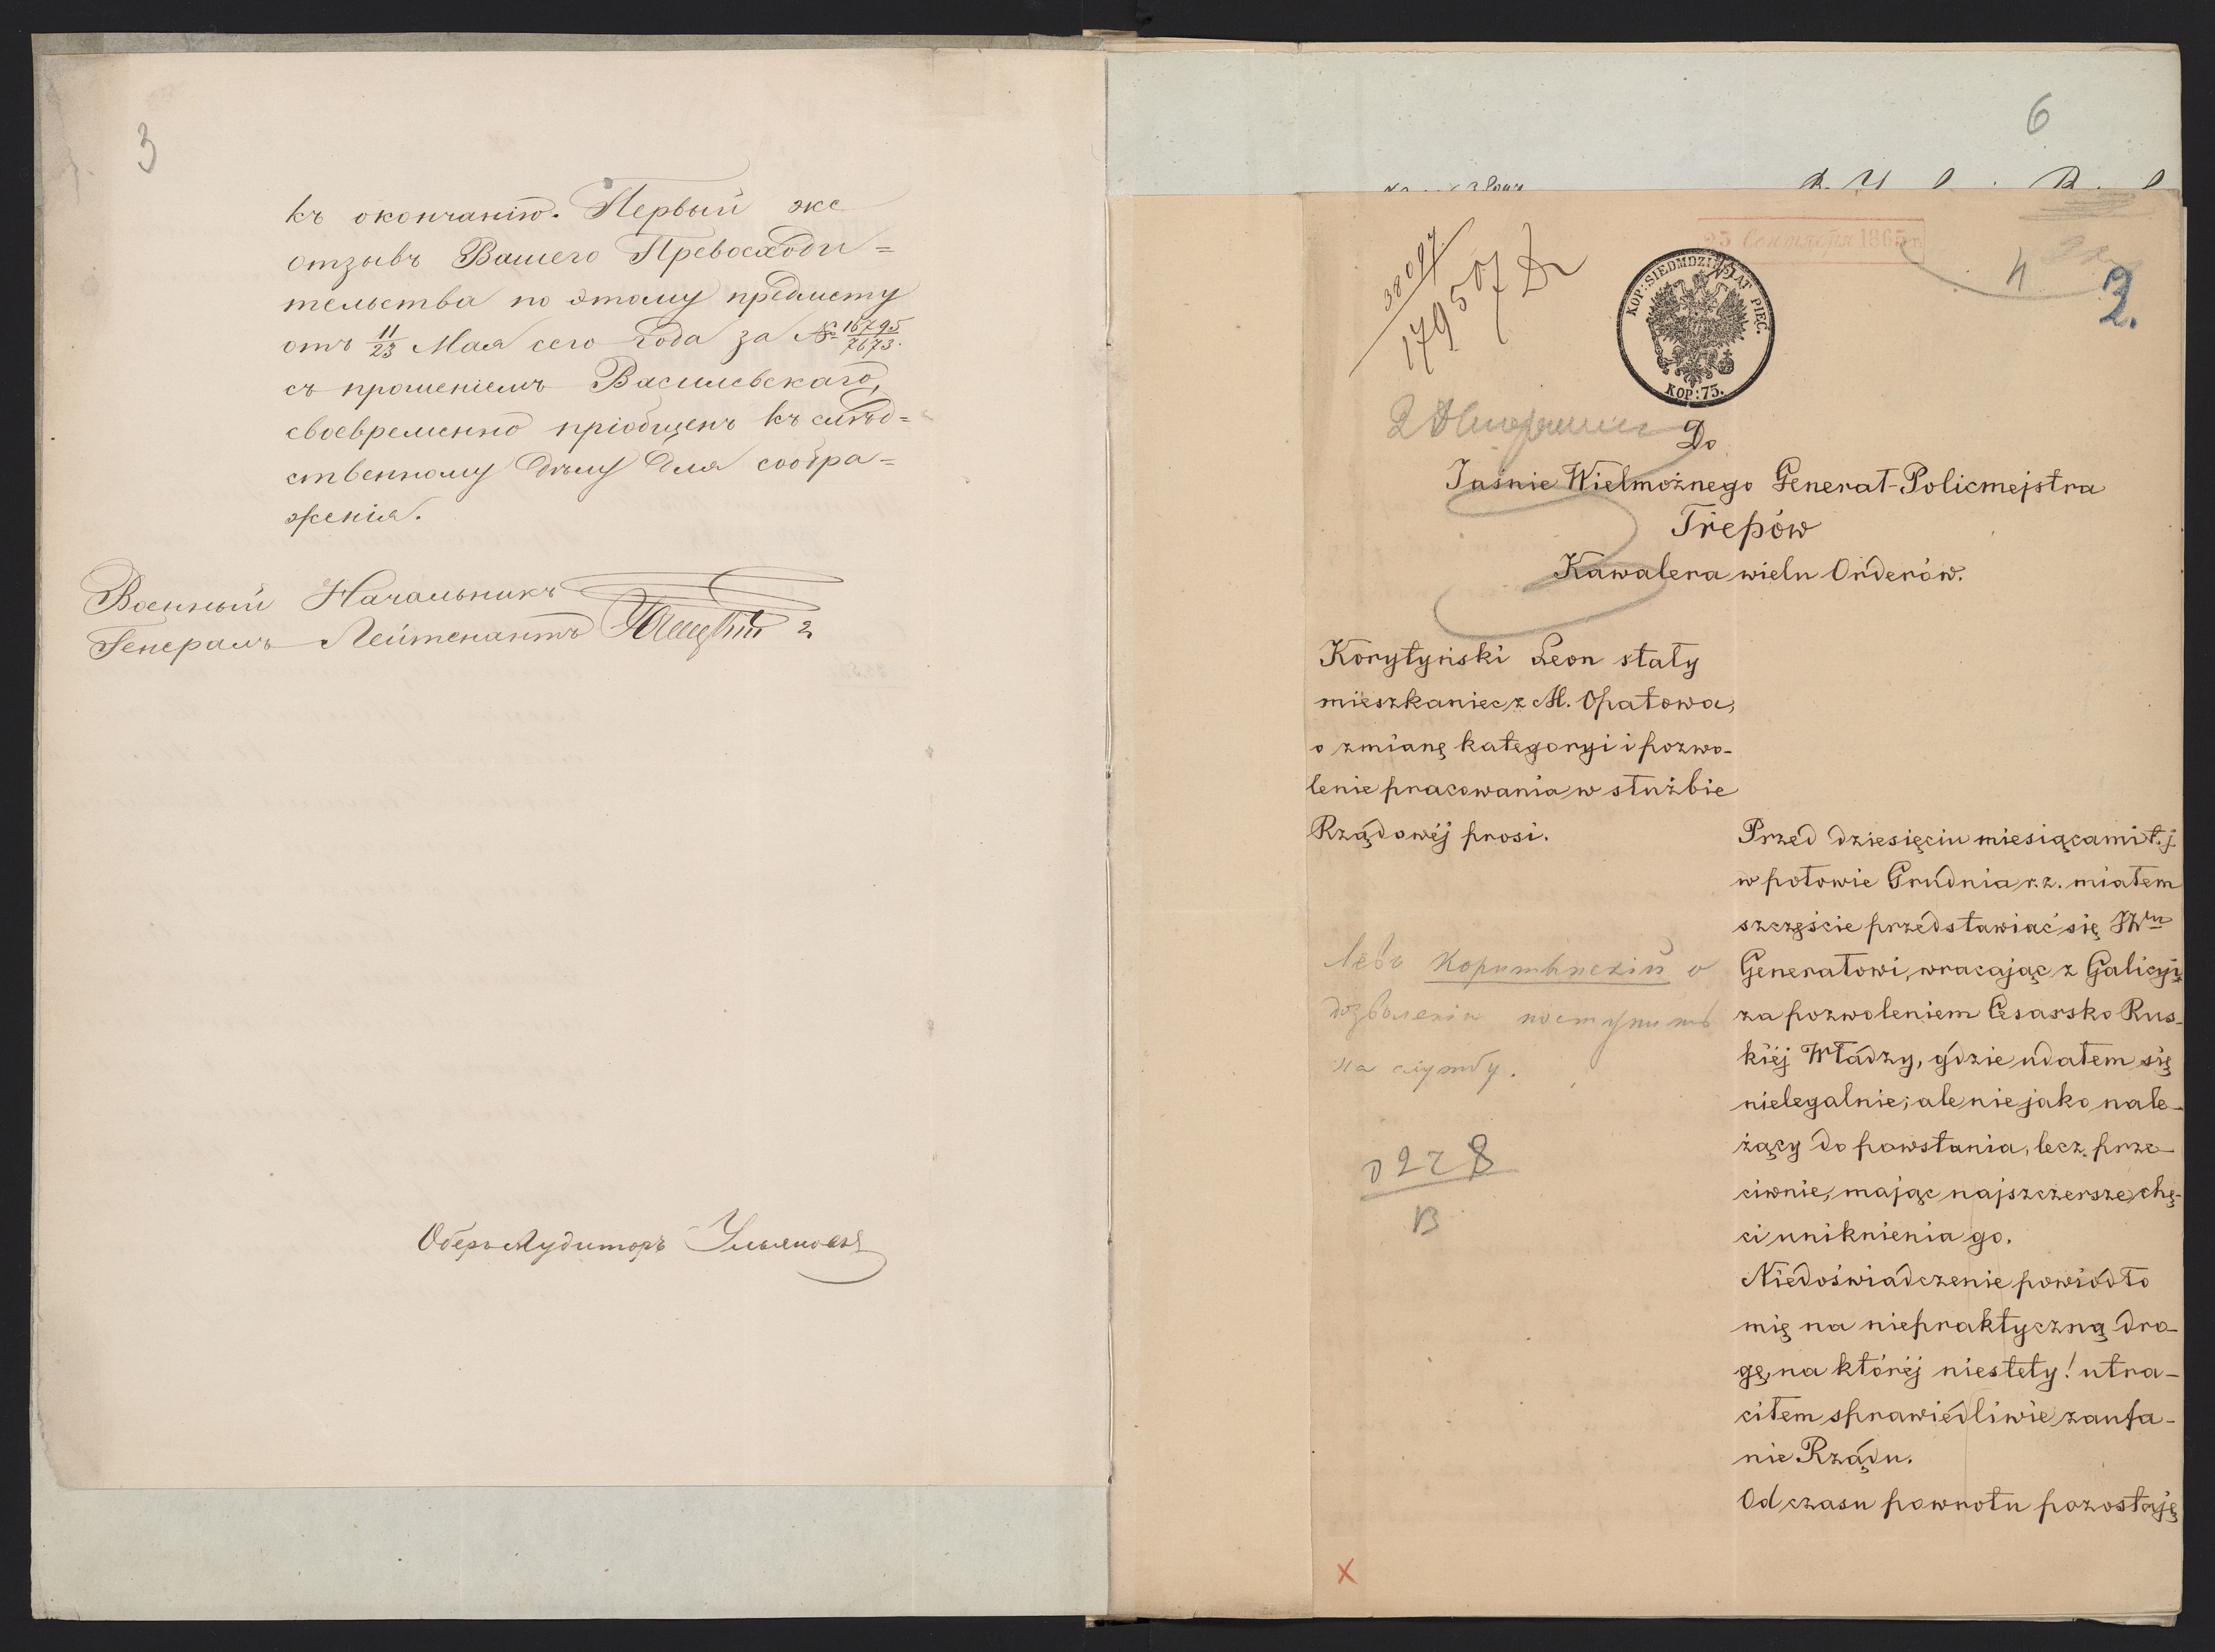 3
къ окончанію. Первый же
отзывъ Вашего Превосходи=
тельства по этому предмету
отъ 11/23 Мая сего года за № 16795/7673.
съ прошеніемъ Василевскаго,
своевременно пріобщенъ къ слѣд=
ственному дѣлу для сообра=
женія.
Военный Начальникъ
Генералъ Лейтенантъ
Оберъ Аудиторъ Ульяновъ
6
23 Сентября 1865 г.
4
2.
38097
17950
KOP: SIEDMDZIESIĄT PIĘĆ.
KOP: 75.
Do
Jaśnie Wielmożnego Generał-Policmejstra
Trepów
Kawalera wielu Orderów.
Korytyński Leon stały
mieszkaniec z M. Opatowa,
o zmianę kategoryi i pozwo-
lenie pracowania w służbie
Rządowéj prosi.
Левъ Корытынскій о
дозволеніи поступить
на службу.
228
В
Przed dziesięciu miesiącami t.j.
w połowie Grudnia r.z. miałem
szczęście przedstawiać się JW
Generałowi, wracając z Galicyi,
za pozwoleniem Cesarsko Rus-
kiéj Władzy, gdzie udałem się
nielegalnie; ale nie jako nale-
żący do powstania, lecz prze-
ciwnie, mając najszczersze chę-
ci uniknienia go.
Niedoświadczenie powiodło
mię na niepraktyczną dro-
gę, na któréj niestety! utra-
ciłem sprawiedliwie zaufa-
nie Rządu.
Od czasu powrotu pozostaję
x